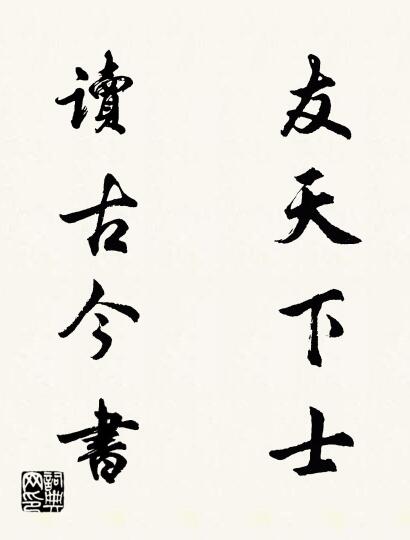 友天下士
讀古今書
詞典網印